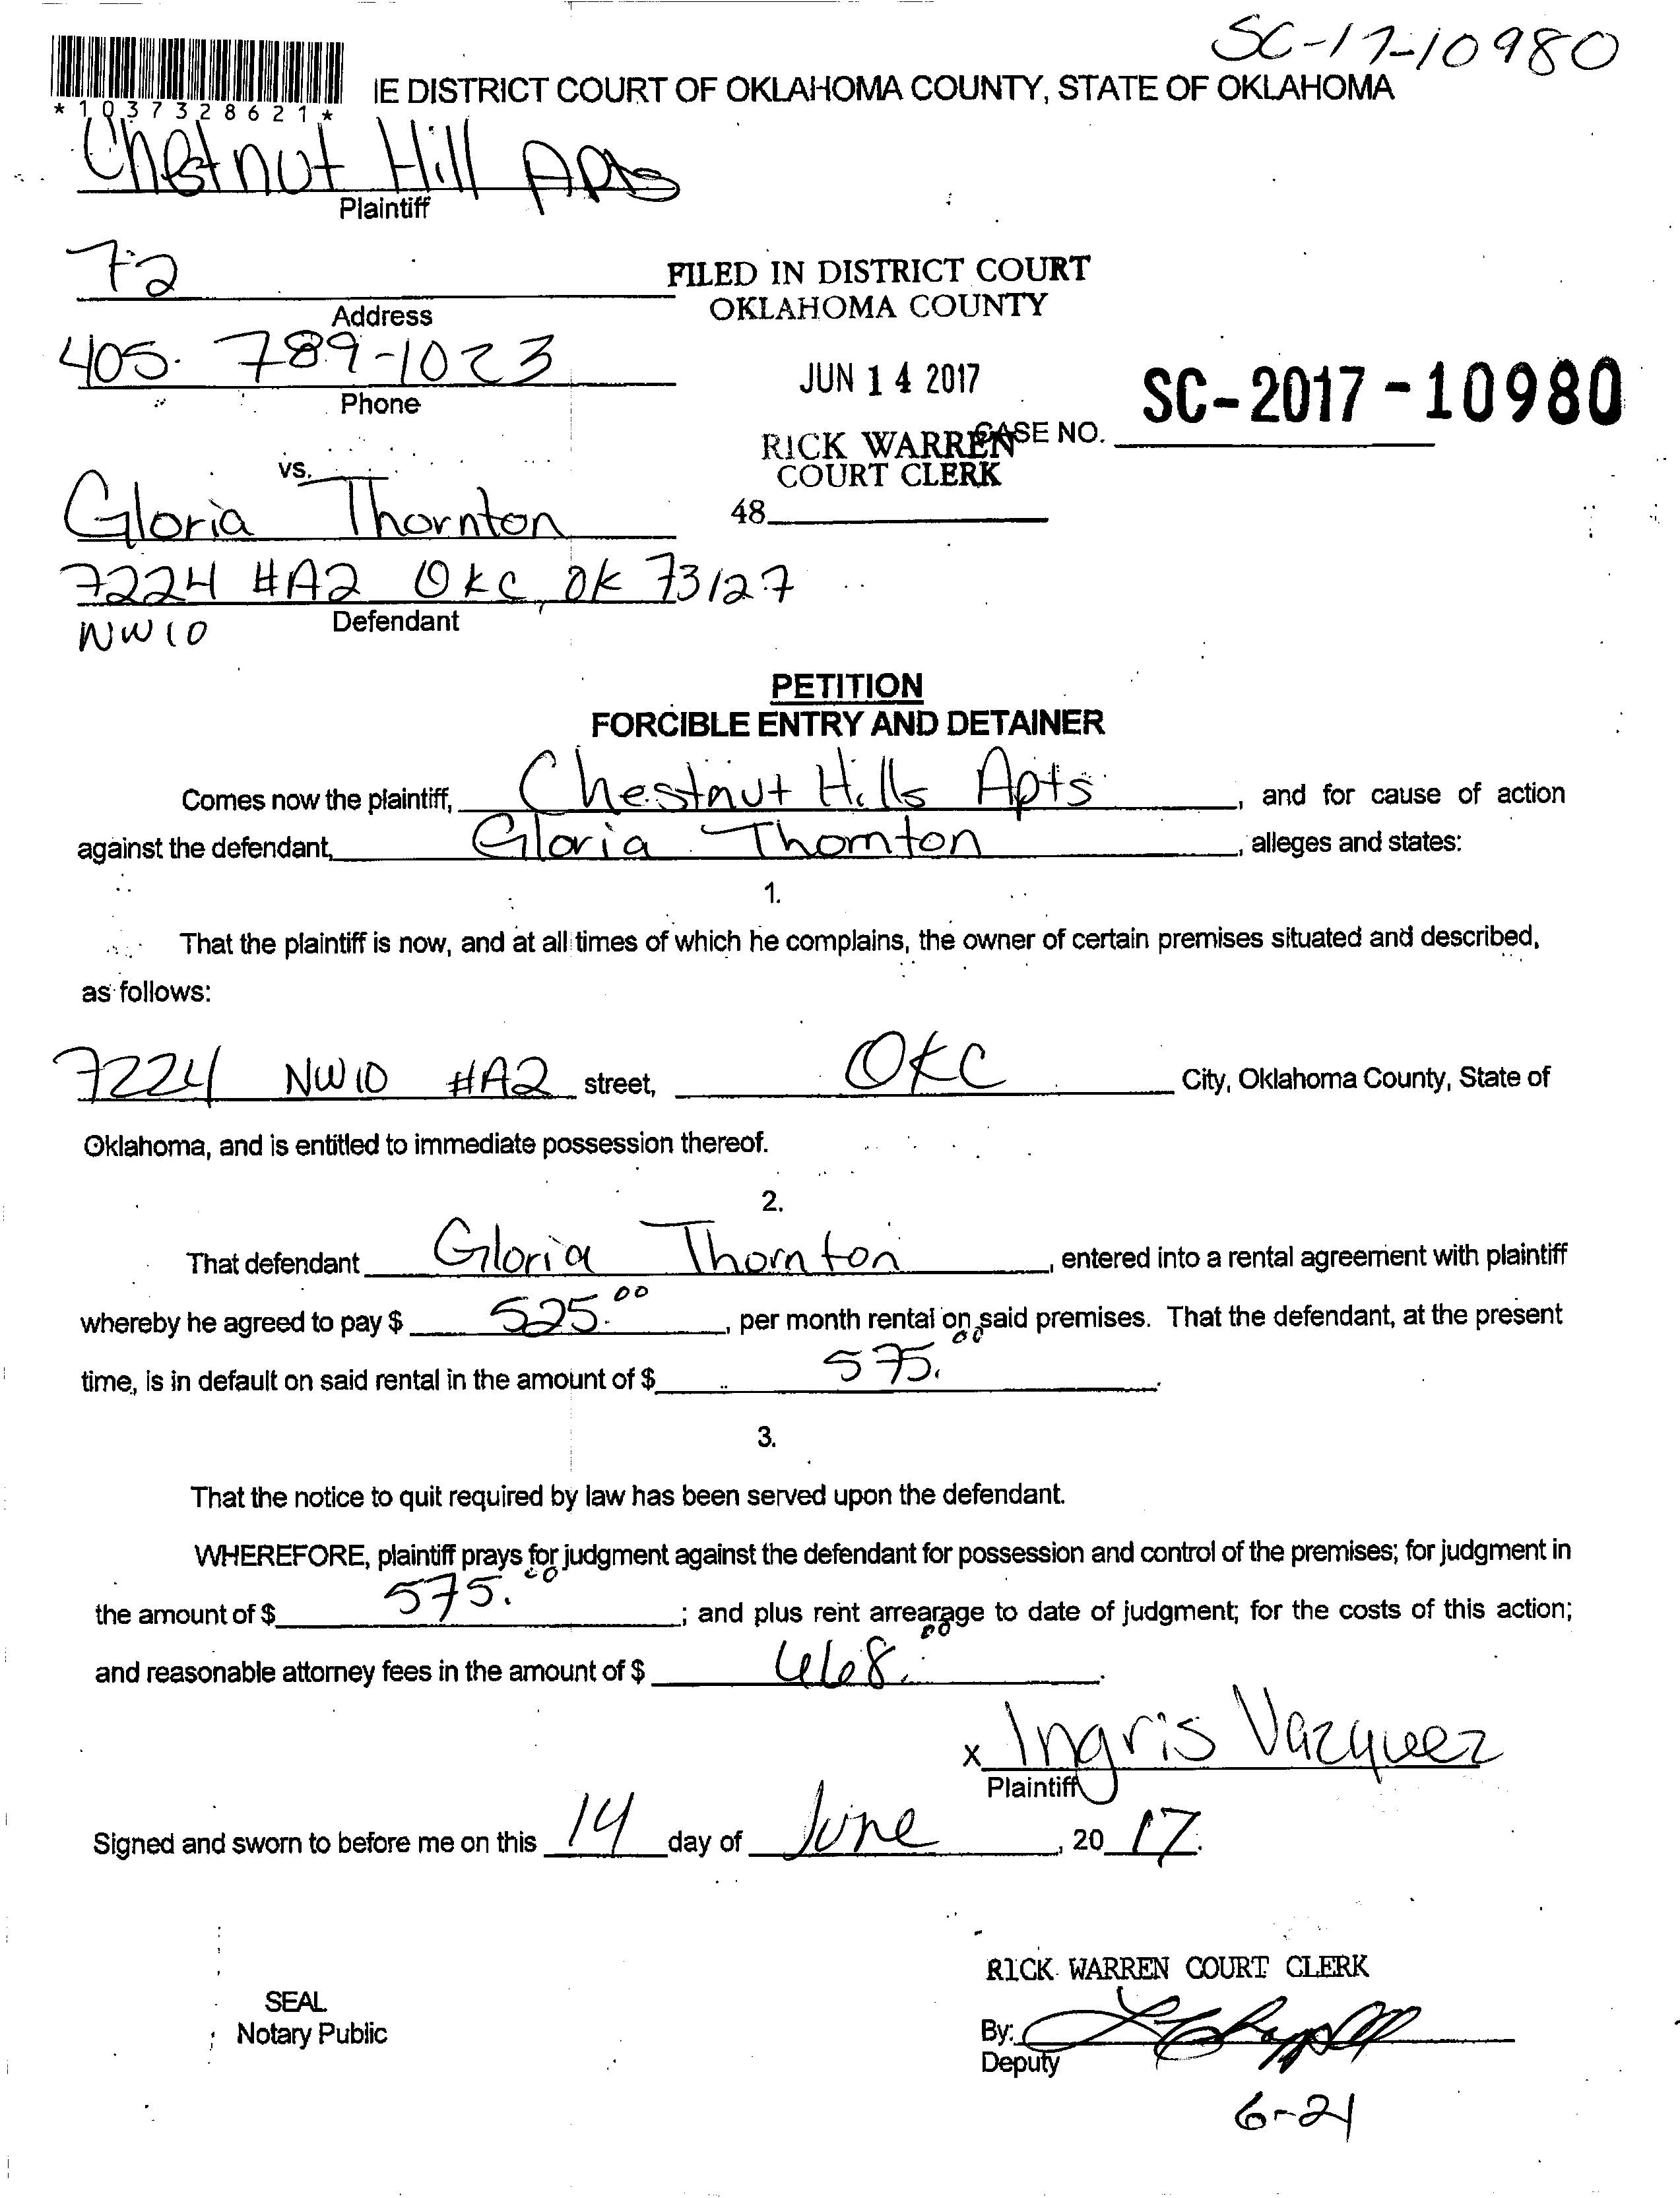 SC-17-10980
*1037328621*
IE DISTRICT COURT OF OKLAHOMA COUNTY, STATE OF OKLAHOMA
Chestnut Hill Apts
Plaintiff
72
Address
FILED IN DISTRICT COURT
OKLAHOMA COUNTY
405. 789-1023
Phone
JUN 14 2017
SC-2017-10980
RICK WARREN
CASE NO.
COURT CLERK
vs.
48
Gloria Thornton
7224 #A2 OKC, OK 73127
NW10
Defendant
PETITION
FORCIBLE ENTRY AND DETAINER
Comes now the plaintiff, Chestnut Hills Apts, and for cause of action
against the defendant, Gloria Thornton, alleges and states:
1.
That the plaintiff is now, and at all times of which he complains, the owner of certain premises situated and described,
as follows:
7224 NW10 #A2 street, OKC City, Oklahoma County, State of
Oklahoma, and is entitled to immediate possession thereof.
2.
That defendant Gloria Thornton, entered into a rental agreement with plaintiff
whereby he agreed to pay $ 525.00, per month rental on said premises. That the defendant, at the present
time, is in default on said rental in the amount of $ 575.00.
3.
That the notice to quit required by law has been served upon the defendant.
WHEREFORE, plaintiff prays for judgment against the defendant for possession and control of the premises; for judgment in
the amount of $ 575.00; and plus rent arrearage to date of judgment; for the costs of this action;
and reasonable attorney fees in the amount of $ .
x Ingris Vazquez
Plaintiff
Signed and sworn to before me on this 14 day of June, 2017.
RICK WARREN COURT CLERK
SEAL
Notary Public
By:
Deputy
6-21